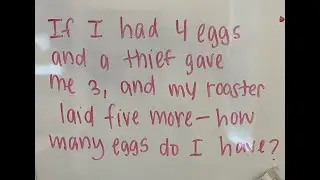 If I had 4 eggs
and a thief gave
me 3, and my rooster
laid five more - how
many eggs do I have?